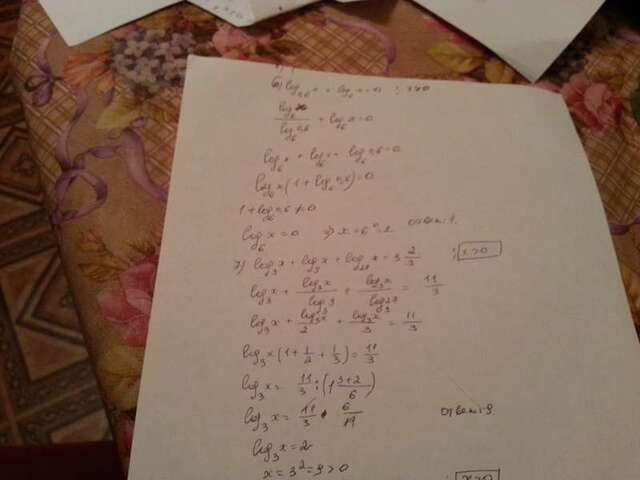 6) log₀,₆ x + log₆ x = 0 ; x>0
log₆x / log₆0,6 + log₆x = 0
log₆x + log₆x · log₆0,6 = 0
log₆x (1 + log₆0,6) = 0
1 + log₆0,6 ≠ 0
log₆x = 0 => x = 6⁰ = 1 ответ: 1.
7) log₃x + log₉x + log₂₇x = 3 2/3 ; x>0
log₃x + log₃x / log₃9 + log₃x / log₃27 = 11/3
log₃x + log₃x / 2 + log₃x / 3 = 11/3
log₃x (1 + 1/2 + 1/3) = 11/3
log₃x = 11/3 : (1 3+2/6)
log₃x = 11/3 · 6/11 ответ: 9.
log₃x = 2
x = 3² = 9 > 0
; x>0